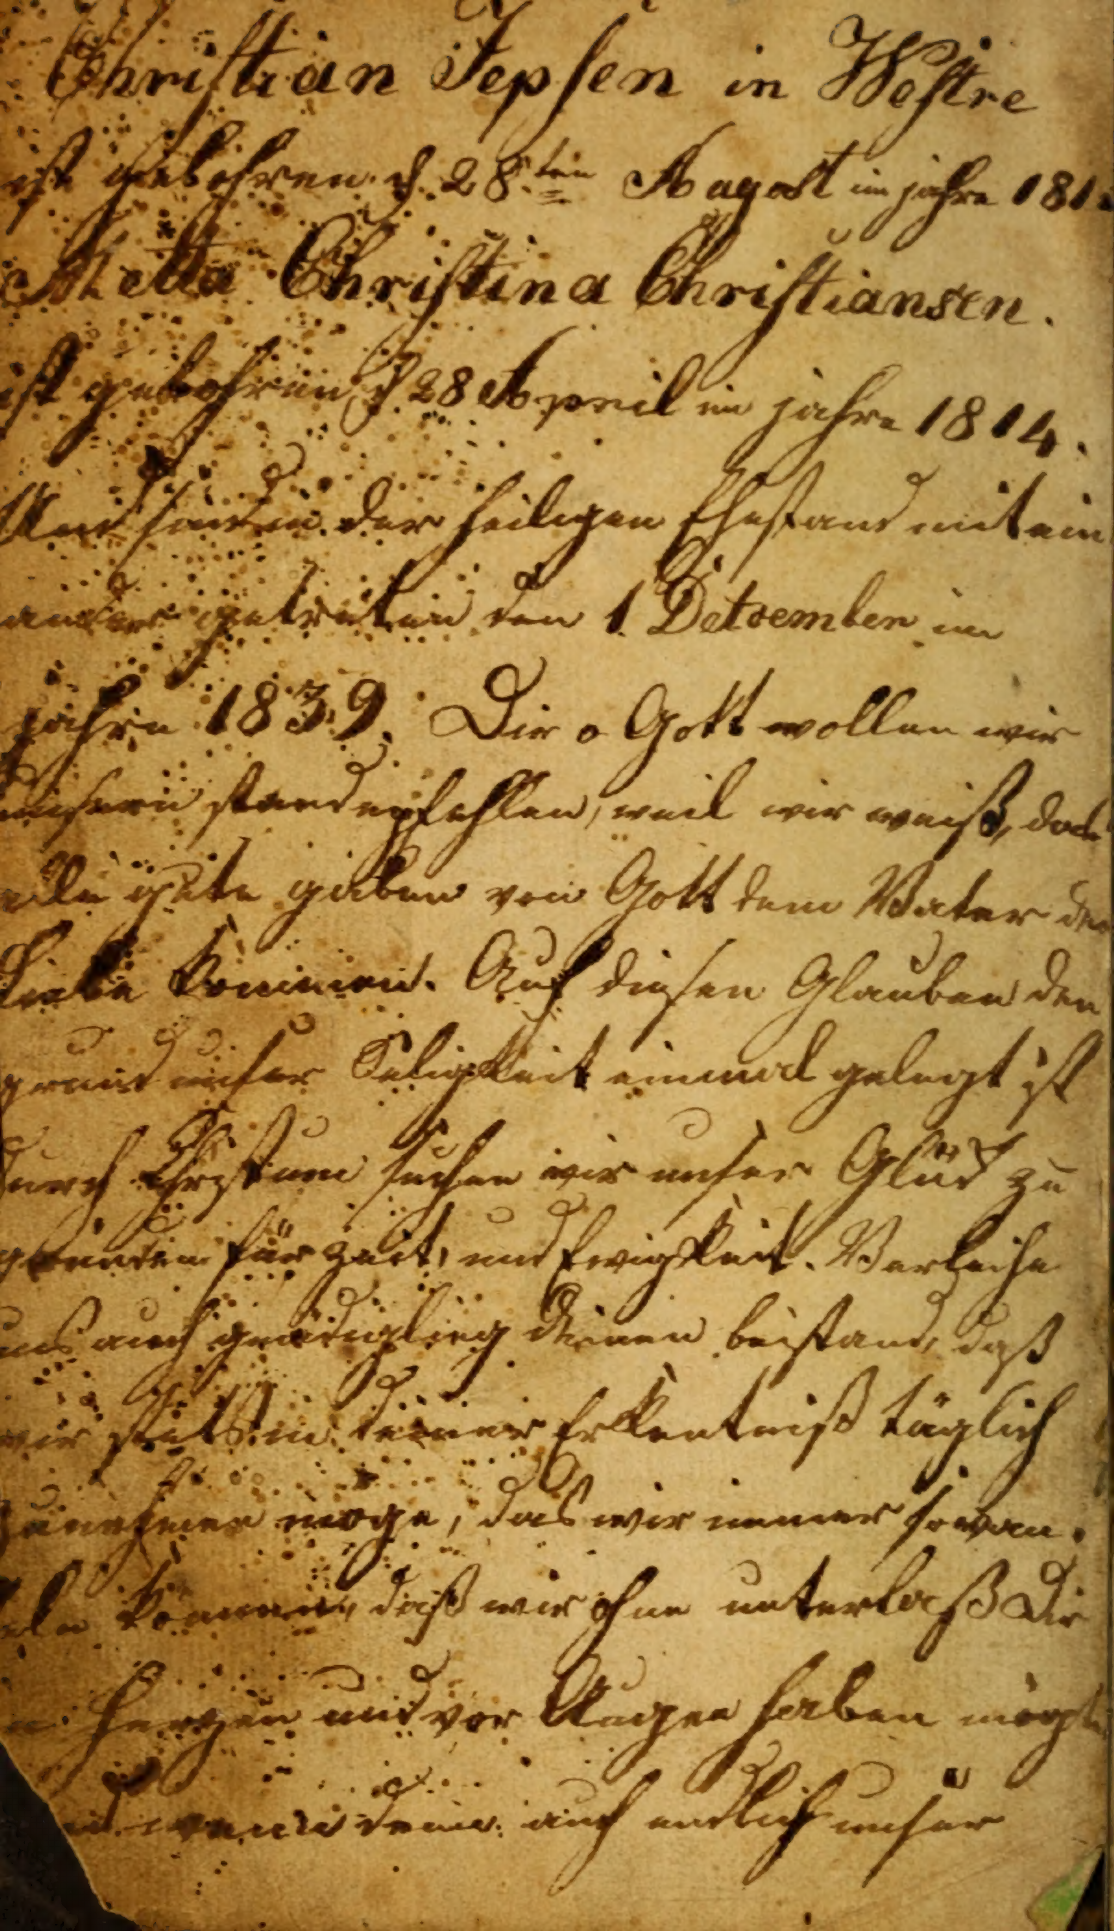 Christian Jepsen in Westre
ist gebohren d 28ten Augost im jahre 181
Metta Christina Christiansen.
ist gebohren d 28 April im jahre 1814.
Und sind in der heiligen Ehestand mit ein
ander getreten den 1. Detzember im
jahre 1839. Dir o Gott wollen wir
unsern stand epfehlen, weil wir weiß, das
alle gute gaben von Gott dem Vater der
Liebe kommen. Auf diesen Glauben den
grund unser Seligkeit einmal gelegt ist
durch Christum suchen wir unser Glück zu
gründen für zeit, und Ewigkeit. Verleihe
uns auch gnädiglieg deinen beistand, daß
wir stets in deiner Erkentniß täglich
zunehmen möge, das wir immer so wan
deln können, daß wir ohne unterlaß Dir
Herzen und vor Augen haben mögte
wenn denn auch endlich unser